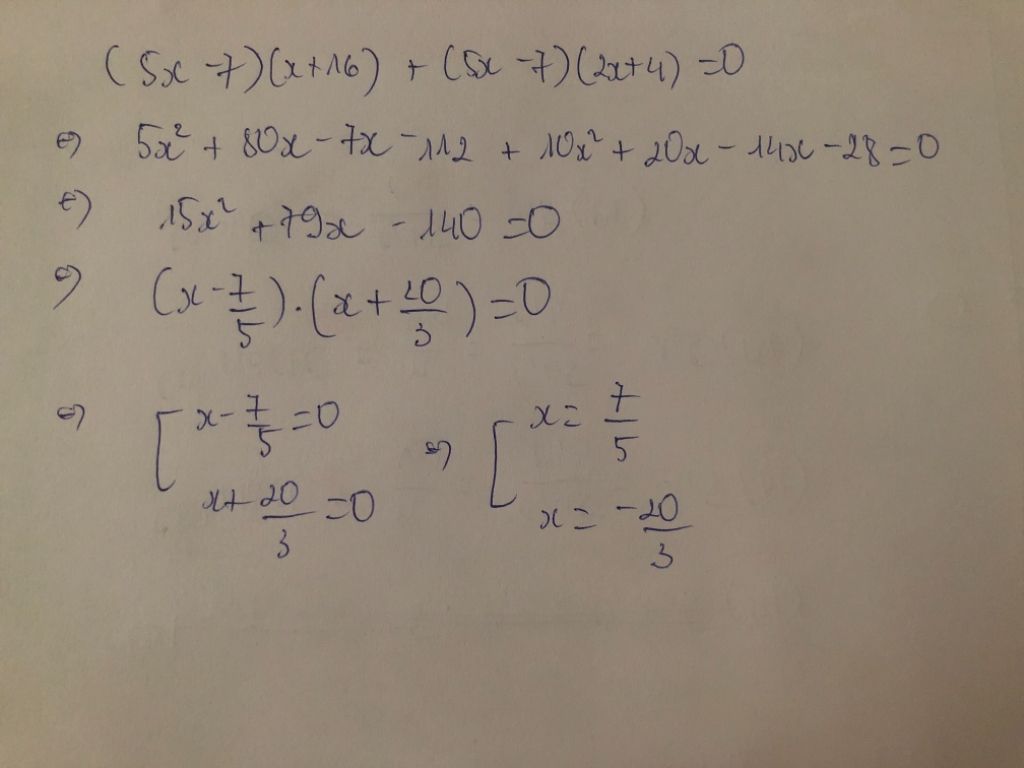 (5x - 7)(x + 16) + (5x - 7)(2x + 4) = 0
⇔ 5x² + 80x - 7x - 112 + 10x² + 20x - 14x - 28 = 0
⇔ 15x² + 79x - 140 = 0
⇔ (x - 7/5) . (x + 20/3) = 0
⇔ [ x - 7/5 = 0 ⇔ [ x = 7/5
x + 20/3 = 0 x = -20/3